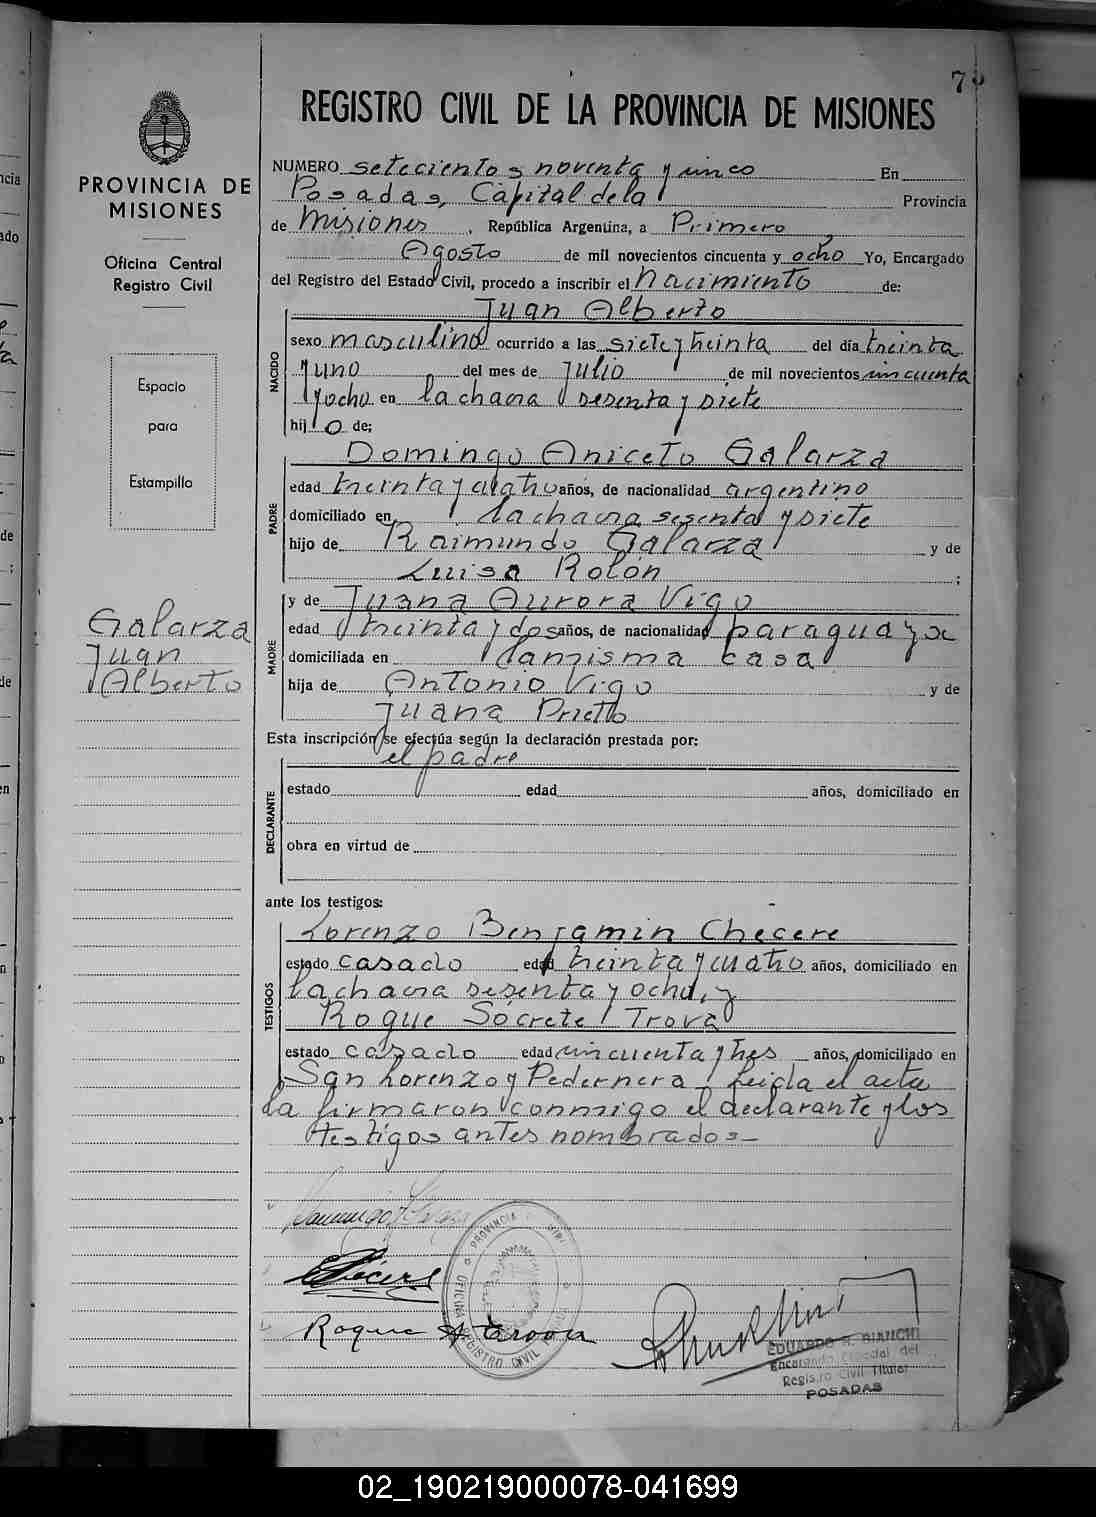 73
REGISTRO CIVIL DE LA PROVINCIA DE MISIONES
PROVINCIA DE
MISIONES
Oficina Central
Registro Civil
Espacio
para
Estampilla
Galarza
Juan
Alberto
NUMERO setecientos noventa y cinco En
Posadas, Capital de la Provincia
de Misiones, República Argentina, a Primero
Agosto de mil novecientos cincuenta y ocho Yo, Encargado
del Registro del Estado Civil, procedo a inscribir el Nacimiento de:
Juan Alberto
NACIDO
sexo masculino ocurrido a las siete y treinta del día treinta
y uno del mes de Julio de mil novecientos cincuenta
y ocho en la chacra sesenta y siete
hijo de:
Domingo Aniceto Galarza
PADRE
edad treinta y cuatro años, de nacionalidad argentino
domiciliado en la chacra sesenta y siete
hijo de Raimundo Galarza y de
Luisa Rolón ;
y de Juana Aurora Vigo
MADRE
edad treinta y dos años, de nacionalidad paraguaya
domiciliada en la misma casa
hija de Antonio Vigo y de
Juana Prietto
Esta inscripción se efectúa según la declaración prestada por:
el padre
DECLARANTE
estado edad años, domiciliado en
obra en virtud de
ante los testigos:
Lorenzo Benjamin Checere
TESTIGOS
estado casado edad treinta y cuatro años, domiciliado en
la chacra sesenta y ocho, y
Roque Socrete Trova
estado casado edad cincuenta y tres años, domiciliado en
San Lorenzo y Pedernera, leida el acta
la firmaron conmigo el declarante y los
testigos antes nombrados-
Roque S Trova
PROVINCIA DE MISIONES
OFICINA REGISTRO CIVIL
EDUARDO R. BIANCHI
Encargado Especial del
Registro Civil Titular
POSADAS
02_190219000078-041699